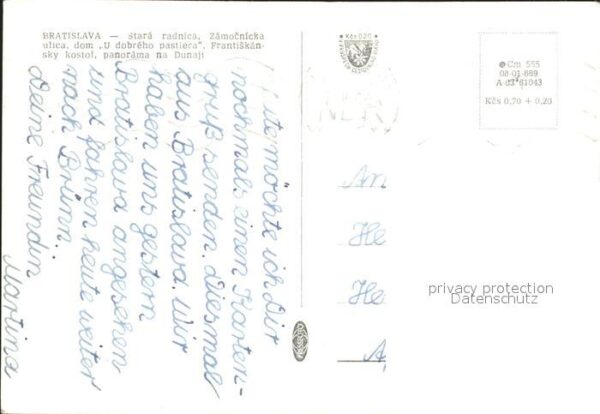 BRATISLAVA — Stará radnica, Zámočnícka
ulica, dom „U dobrého pastiera", Františkán-
sky kostol, panoráma na Dunaji
möchte ich Dir
nochmals einen Karten-
gruß senden. Diesmal
aus Bratislava. Wir
haben uns gestern
Bratislava angesehen
und fahren heute weiter
nach Brünn.
Deine Freundin
Martina
Kčs 0,20
Cm 555
08-01-089
A-03*81043
Kčs 0,70 + 0,20
An
He
He
A
privacy protection
Datenschutz